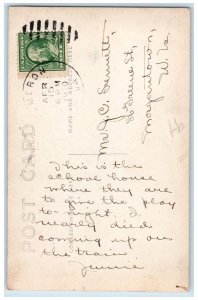 POST CARD
NAME AND ADDRESS
Mr J. C. Bennett,
Greene St,
Morgantown,
W. Va.
This is the
school house
where they are
to give the play
to-night. I
nearly died
coming up on
the train
Jennie